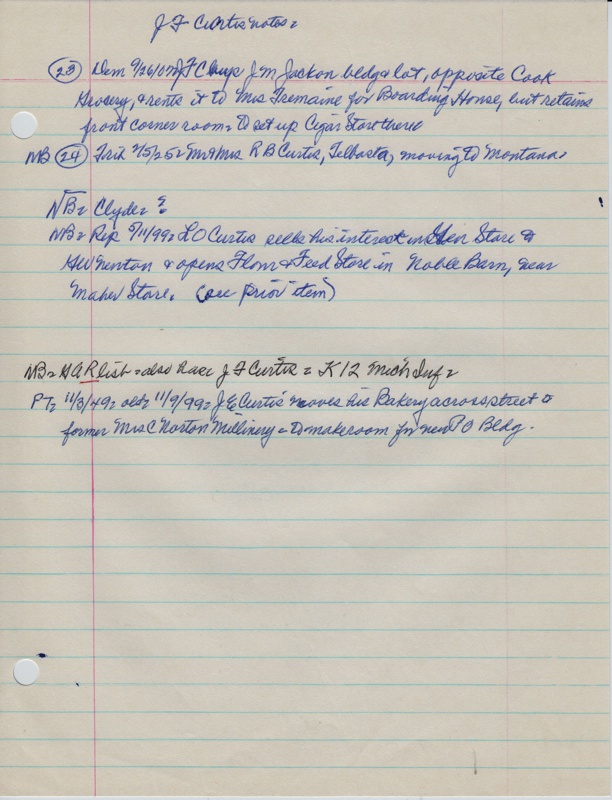 J F Curtis notes =
(23) Dem 9/26/07 = J F C buys J M Jackson bldg & lot, opposite Cook
Grocery, & rents it to Mrs Tremaine for Boarding House, but retains
front corner room = to set up Cigar Store there
NB (24) Trib 2/5/25 = Mr & Mrs R B Curtis, moving to Montana =
NB = Clyde = ?
NB = Rep 5/11/99 = L O Curtis sells his interest in Store to
Newton & opens Flour & Feed Store in Noble Barn, near
Maher Store. (see prior item)
NB = GAR list = also have J F Curtis = K 12 Mich Inf =
PT = 11/3/49 = old = 11/9/99 = J E Curtis moves his Bakery across street to
former Mrs C Norton Millinery = to make room for new P O Bldg.